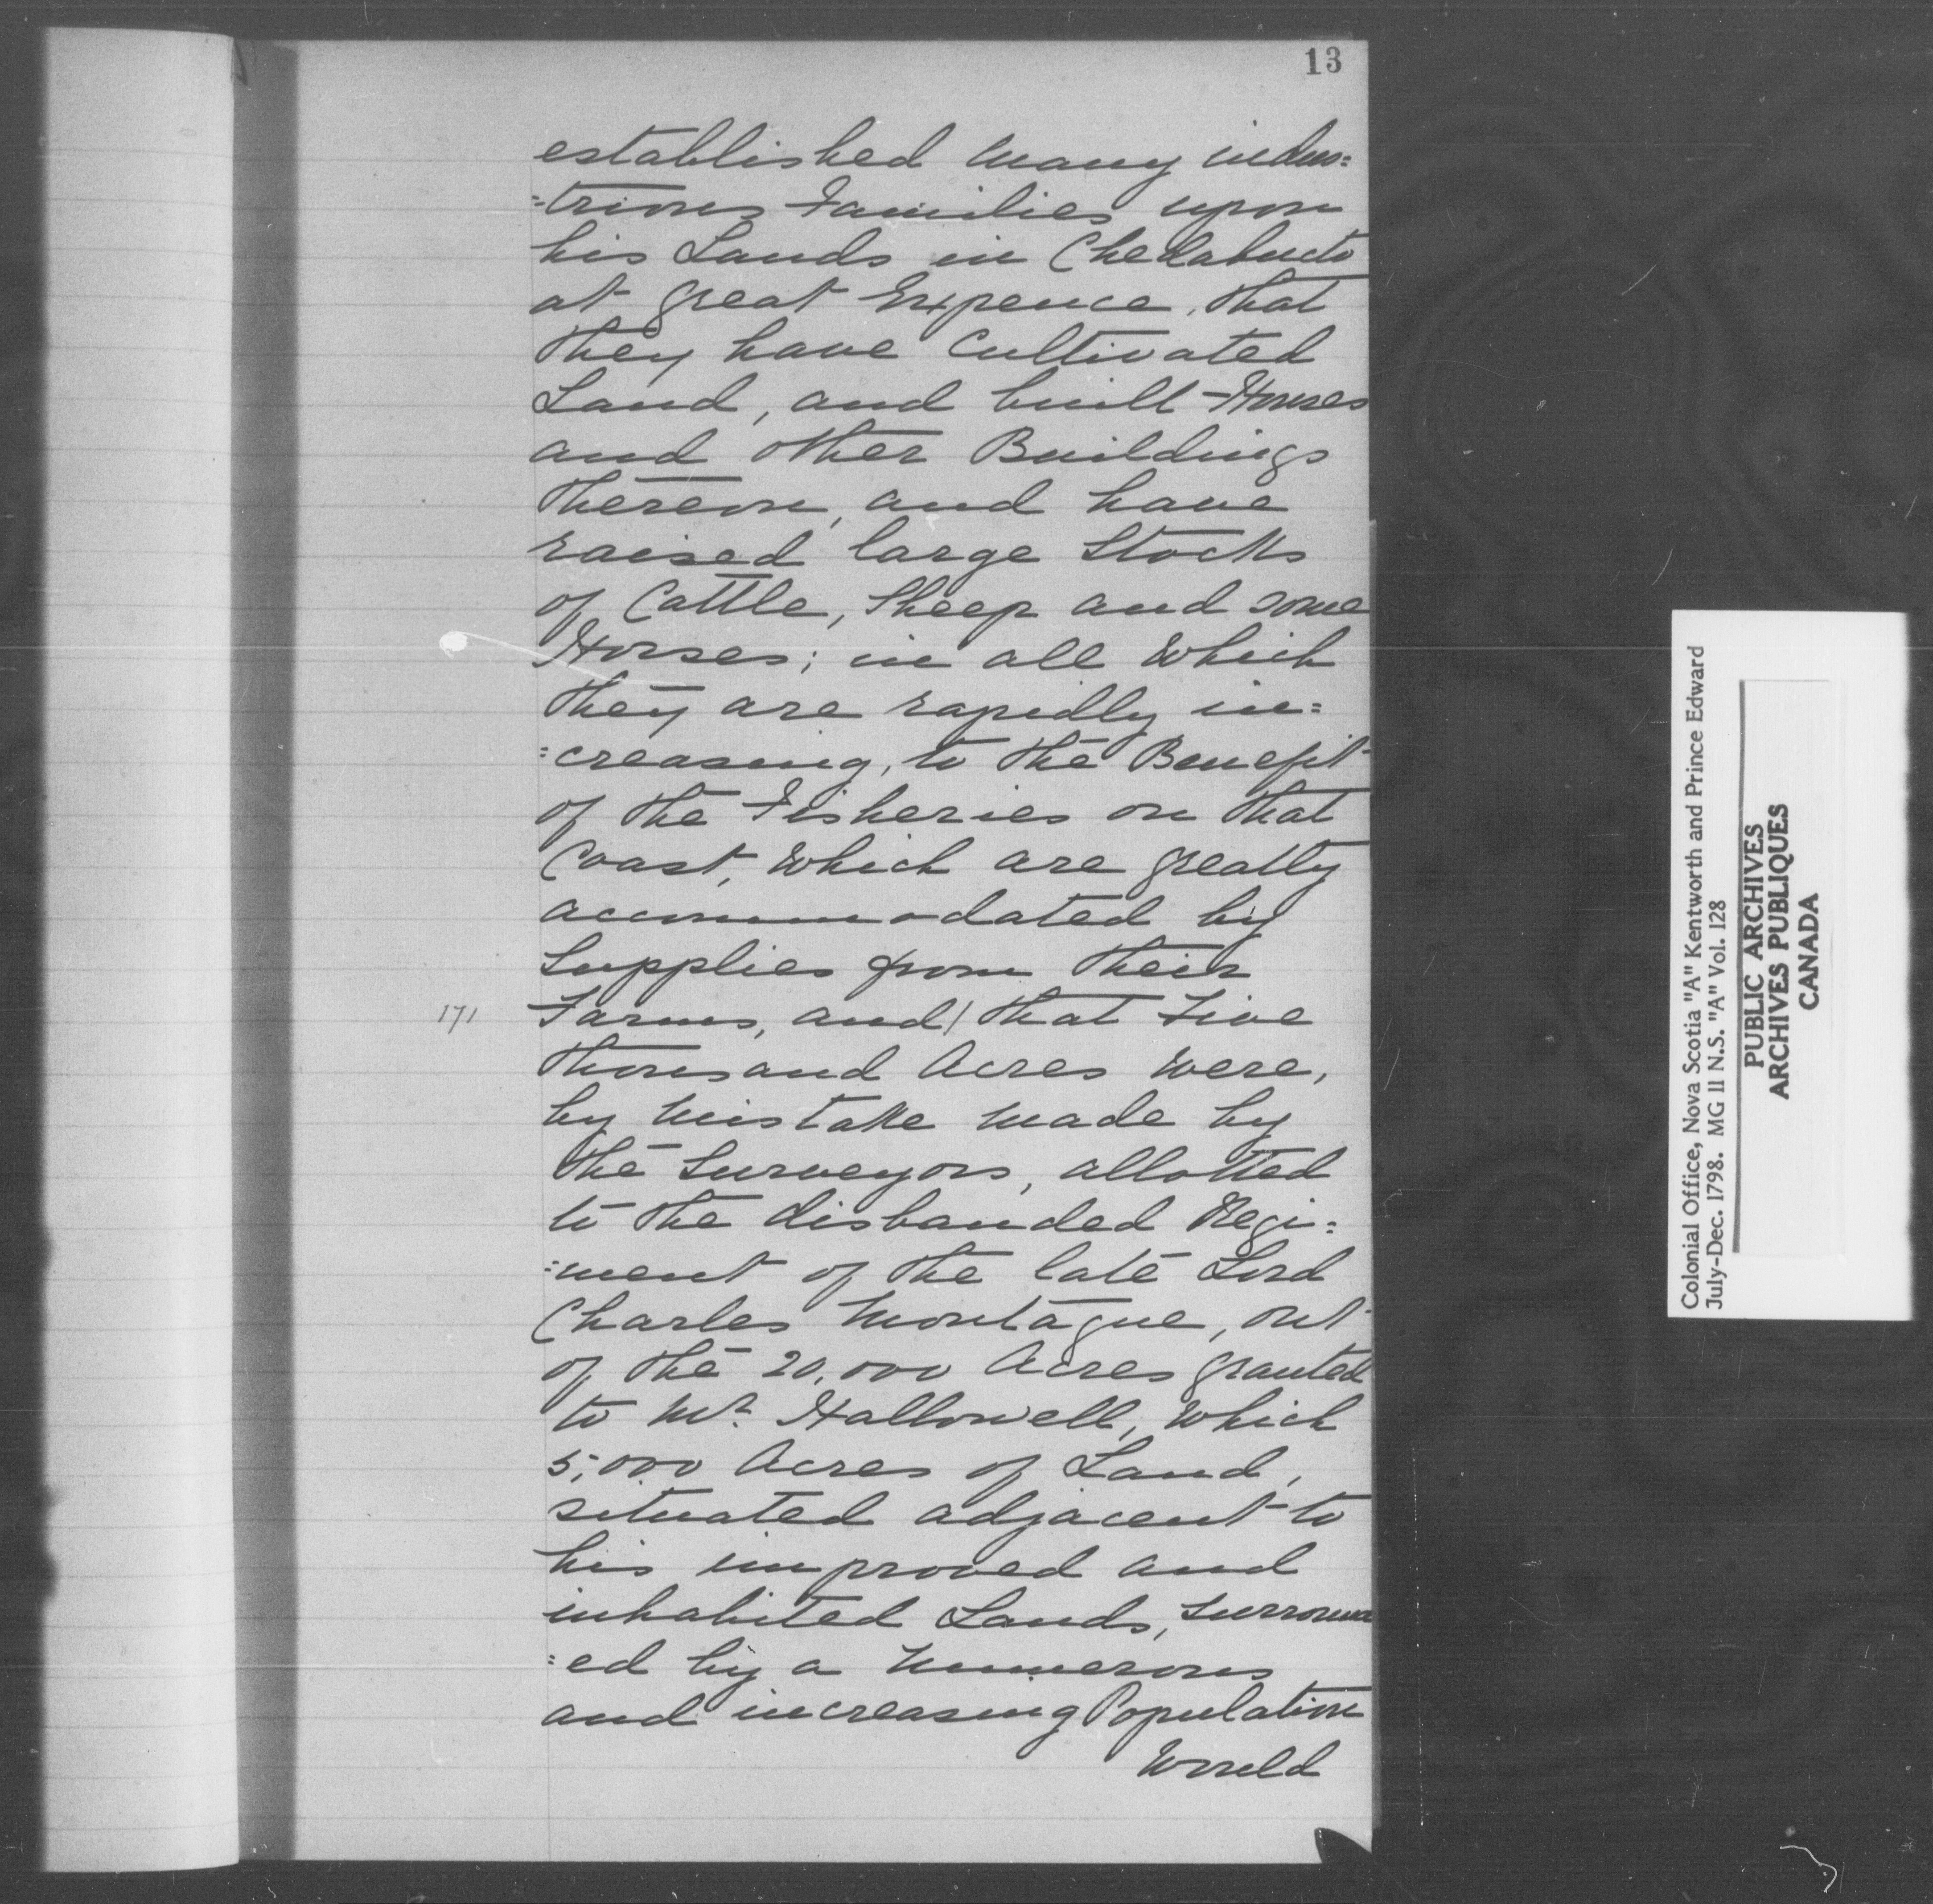 13
established many indus=
=trious Families upon
his Lands in Chedabucto
at great Expence, that
they have Cultivated
Land, and built Houses
and other Buildings
thereon, and have
raised large Stocks
of Cattle, Sheep and some
Horses; in all which
they are rapidly in=
=creasing, to the Benefit
of the Fisheries on that
Coast, which are greatly
accommodated by
Supplies from their
171 Farms, and/ that Five
thousand Acres were,
by mistake made by
the Surveyors, allotted
to the disbanded Regi=
=ment of the late Lord
Charles Montague, out
of the 20,000 Acres granted
to Mr. Hallowell, which
5,000 Acres of Land,
situated adjacent to
his improved and
inhabited Lands, surround
=ed by a numerous
and increasing Population
Would
Colonial Office, Nova Scotia "A" Kentworth and Prince Edward
July-Dec. 1798. MG 11 N.S. "A" Vol. 128
PUBLIC ARCHIVES
ARCHIVES PUBLIQUES
CANADA